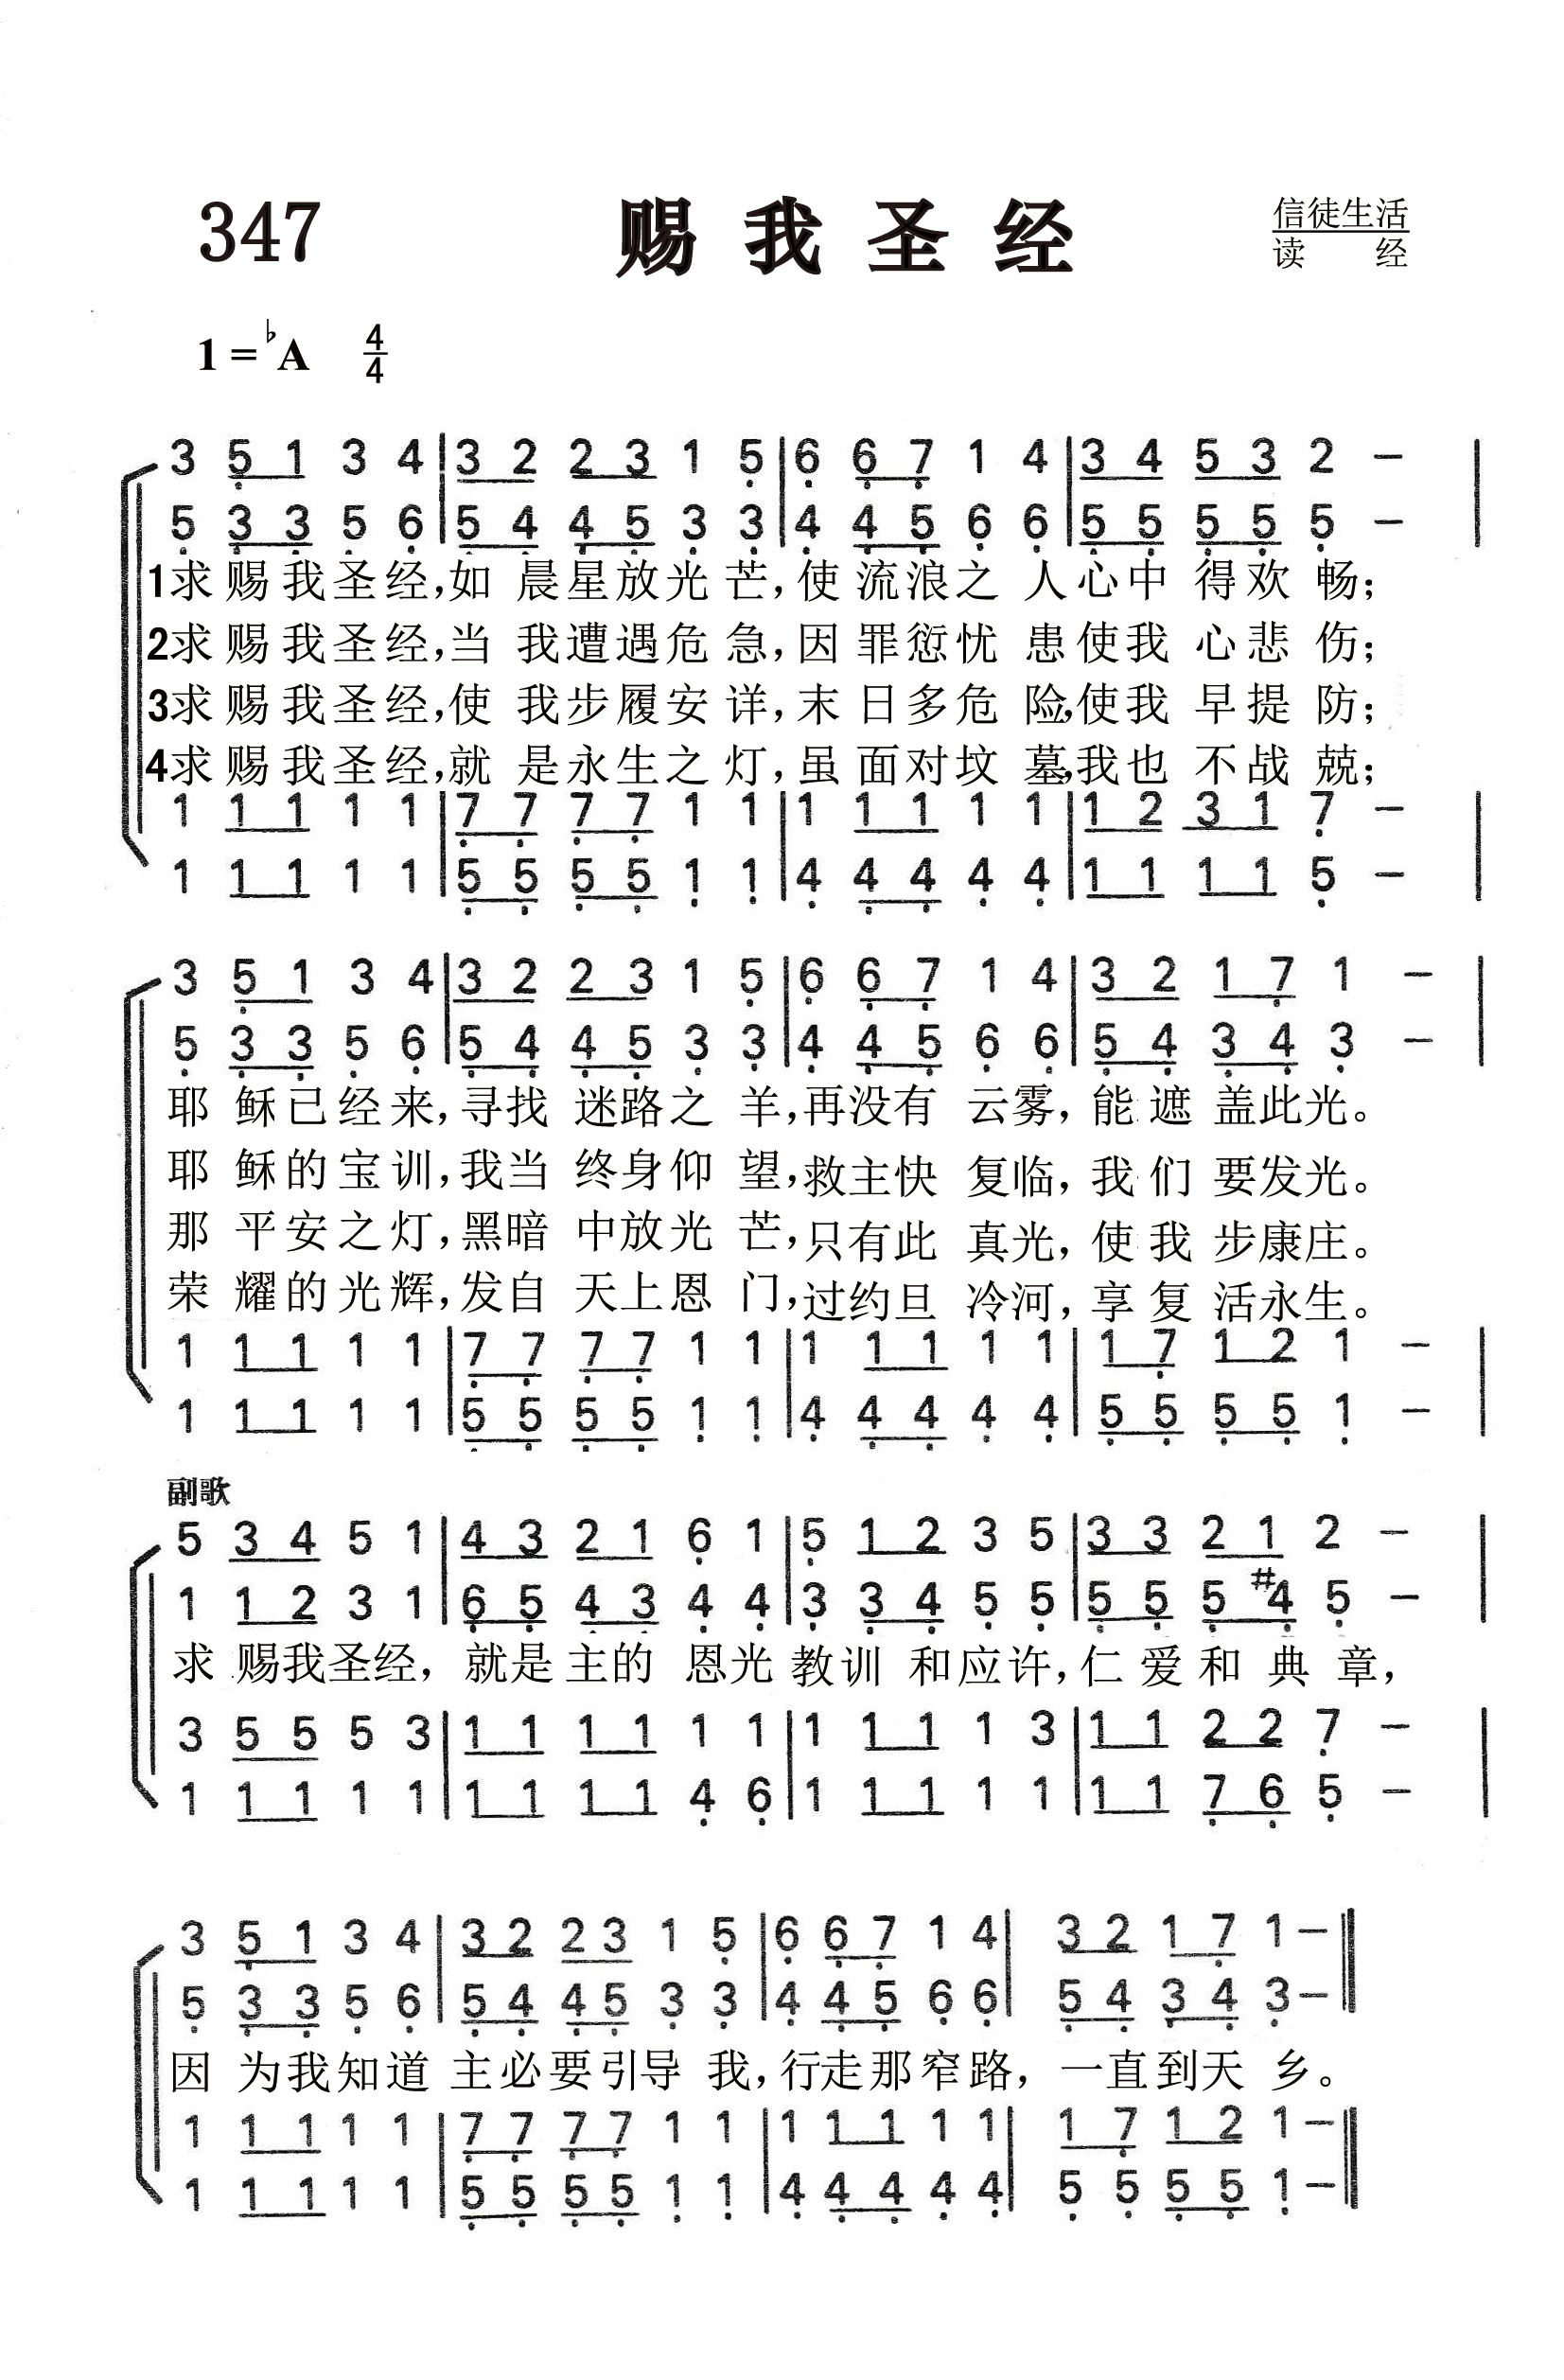 347 赐我圣经 信徒生活
读经
1=♭A 4/4
3 5 1 3 4 | 3 2 2 3 1 5 | 6 6 7 1 4 | 3 4 5 3 2 - |
5 3 3 5 6 | 5 4 4 5 3 3 | 4 4 5 6 6 | 5 5 5 5 5 - |
1求赐我圣经,如晨星放光芒,使流浪之人心中得欢畅;
2求赐我圣经,当我遭遇危急,因罪愆忧患使我心悲伤;
3求赐我圣经,使我步履安详,末日多危险,使我早提防;
4求赐我圣经,就是永生之灯,虽面对坟墓,我也不战兢;
1 1 1 1 1 | 7 7 7 7 1 1 | 1 1 1 1 1 | 1 2 3 1 7 - |
1 1 1 1 1 | 5 5 5 5 1 1 | 4 4 4 4 4 | 1 1 1 1 5 - |
3 5 1 3 4 | 3 2 2 3 1 5 | 6 6 7 1 4 | 3 2 1 7 1 - |
5 3 3 5 6 | 5 4 4 5 3 3 | 4 4 5 6 6 | 5 4 3 4 3 - |
耶稣已经来,寻找迷路之羊,再没有云雾,能遮盖此光。
耶稣的宝训,我当终身仰望,救主快复临,我们要发光。
那平安之灯,黑暗中放光芒,只有此真光,使我步康庄。
荣耀的光辉,发自天上恩门,过约旦冷河,享复活永生。
1 1 1 1 1 | 7 7 7 7 1 1 | 1 1 1 1 1 | 1 7 1 2 1 - |
1 1 1 1 1 | 5 5 5 5 1 1 | 4 4 4 4 4 | 5 5 5 5 1 - |
副歌
5 3 4 5 1 | 4 3 2 1 6 1 | 5 1 2 3 5 | 3 3 2 1 2 - |
1 1 2 3 1 | 6 5 4 3 4 4 | 3 3 4 5 5 | 5 5 5 #4 5 - |
求赐我圣经,就是主的恩光教训和应许,仁爱和典章,
3 5 5 5 3 | 1 1 1 1 1 1 | 1 1 1 1 3 | 1 1 2 2 7 - |
1 1 1 1 1 | 1 1 1 1 4 6 | 1 1 1 1 1 | 1 1 7 6 5 - |
3 5 1 3 4 | 3 2 2 3 1 5 | 6 6 7 1 4 | 3 2 1 7 1 - ‖
5 3 3 5 6 | 5 4 4 5 3 3 | 4 4 5 6 6 | 5 4 3 4 3 - ‖
因为我知道主必要引导我,行走那窄路,一直到天乡。
1 1 1 1 1 | 7 7 7 7 1 1 | 1 1 1 1 1 | 1 7 1 2 1 - ‖
1 1 1 1 1 | 5 5 5 5 1 1 | 4 4 4 4 4 | 5 5 5 5 1 - ‖